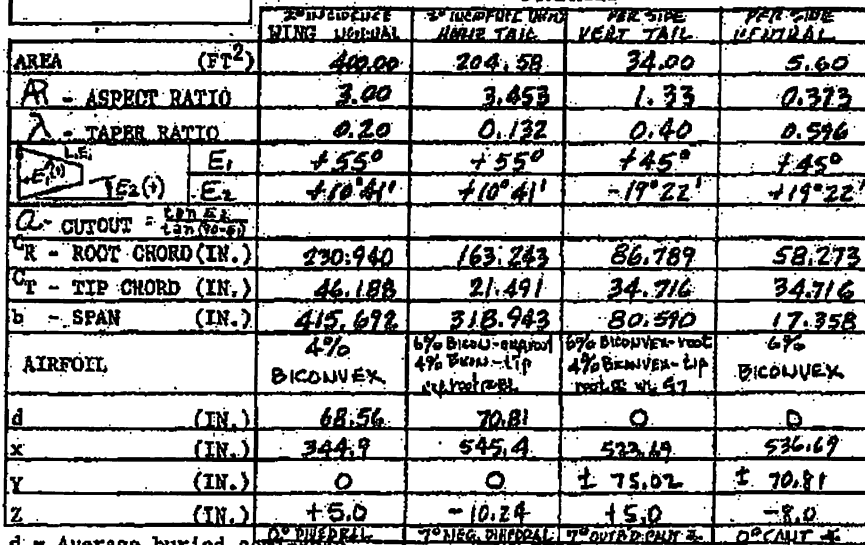 2° INCIDENCE 3° INCIDENCE PER SIDE PER SIDE
WING NORMAL HORIZ TAIL VERT TAIL VENTRAL
AREA (FT²) 400.00 204.58 34.00 5.60
AR - ASPECT RATIO 3.00 3.453 1.33 0.373
λ - TAPER RATIO 0.20 0.132 0.40 0.596
L.E. E₁(+) E₁ +55° +55° +45° +45°
E₂(+) E₂ +10°41' +10°41' -19°22' +19°22'
a - CUTOUT = tan E₂ / tan(90-E₁)
C_R - ROOT CHORD (IN.) 230.940 163.243 86.789 58.273
C_T - TIP CHORD (IN.) 46.188 21.491 34.716 34.716
b - SPAN (IN.) 415.692 318.943 80.590 17.358
AIRFOIL 4% BICONVEX 6% BICON- 4% BICON.-tip 6% BICONVEX-root 4% BICONVEX-tip root @ WL 57 6% BICONVEX
d (IN.) 68.56 70.81 0 0
x (IN.) 344.9 545.4 523.69 536.69
Y (IN.) 0 0 ± 75.02 ± 70.81
Z (IN.) +5.0 -10.24 +5.0 -8.0
d = Average buried 0° DIHEDRAL 7° NEG. DIHEDRAL 7° OUTB'D CANT 0° CANT